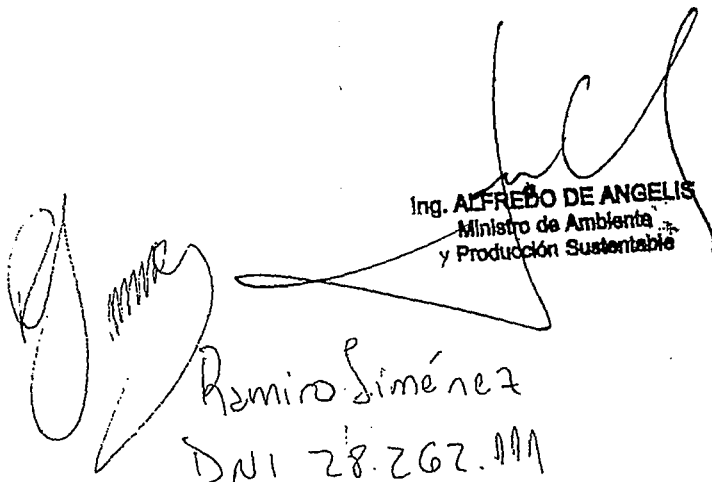 Ing. ALFREDO DE ANGELIS
Ministro de Ambiente
y Producción Sustentable
Ramiro Jiménez
DNI 28.262.111